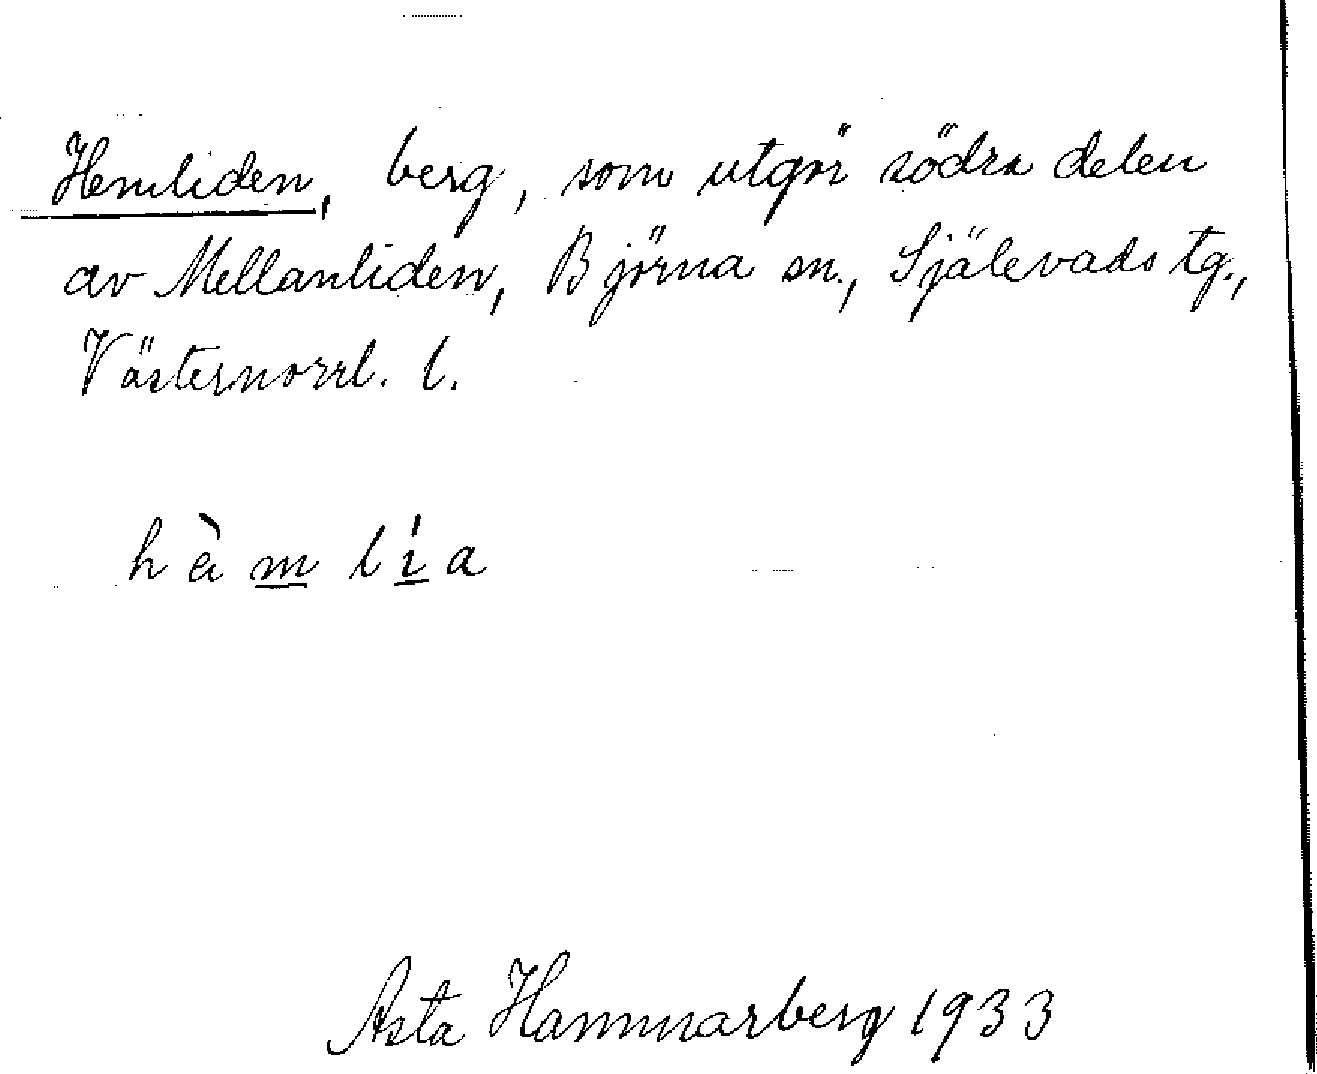 Hemliden, berg, som utgör södra delen
av Mellanliden, Björna sn., Själevads tg.,
Västernorrl. l.
hàm lía
Asta Hammarberg 1933